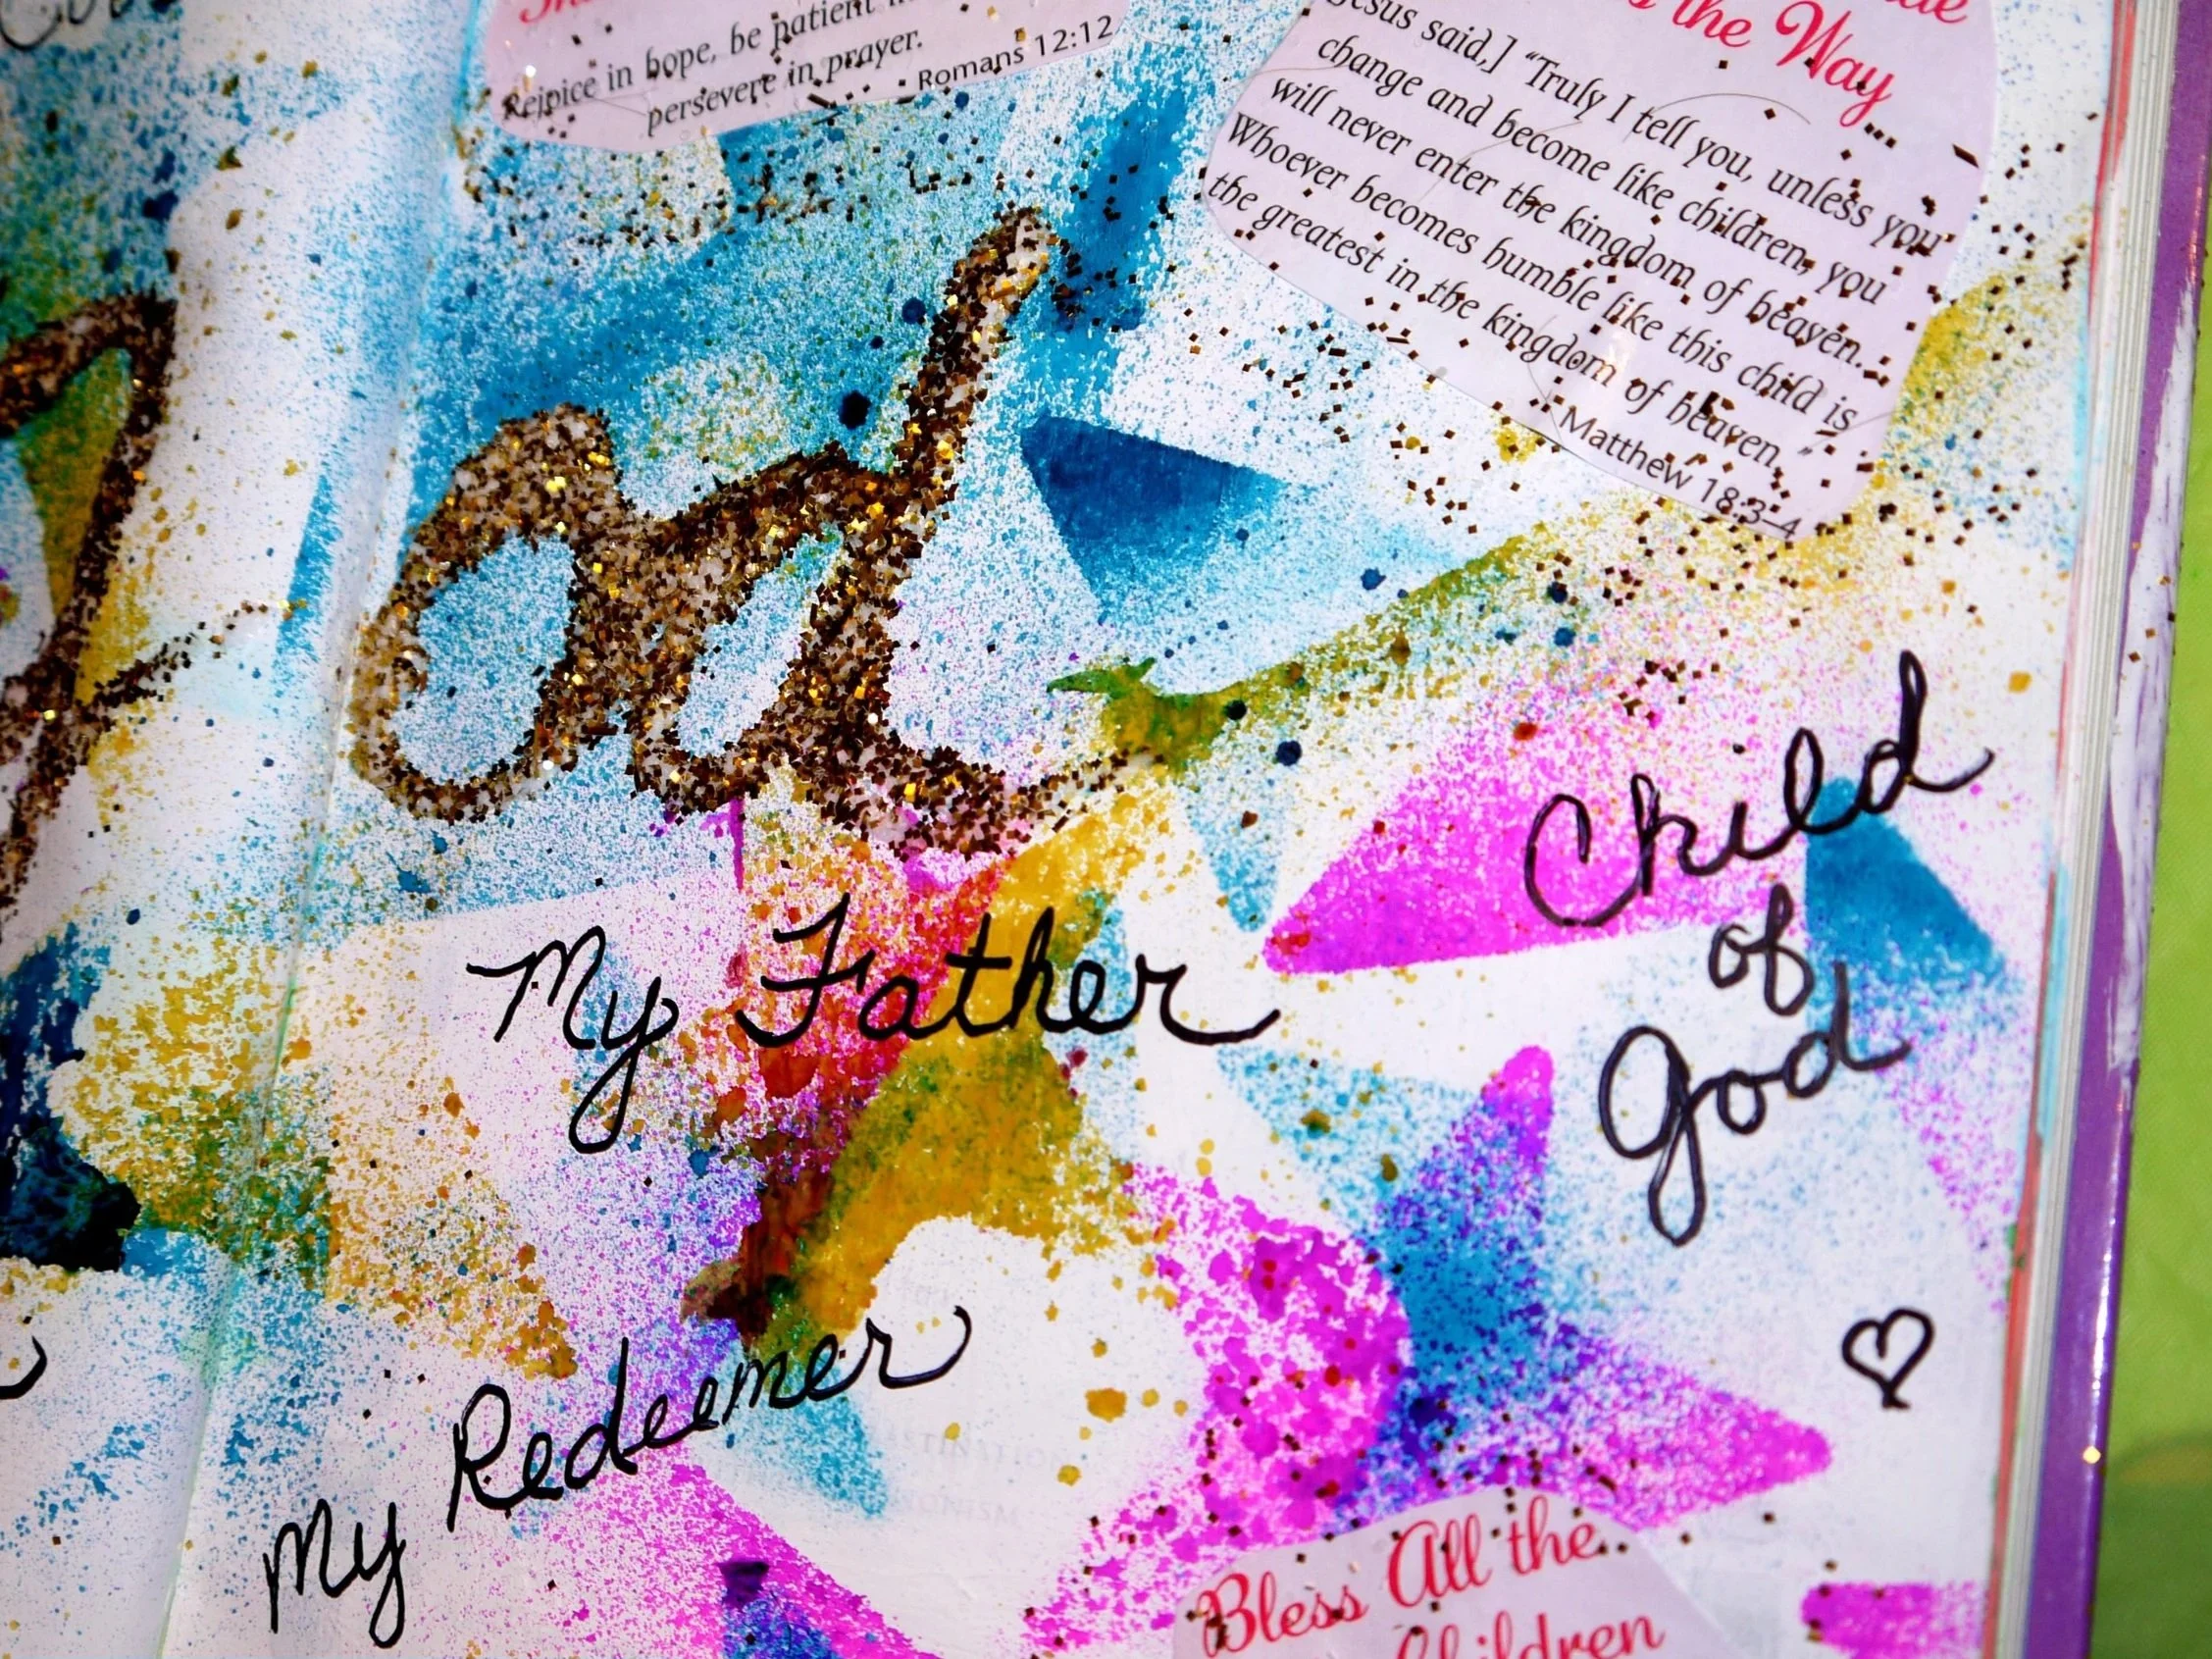 Rejoice in hope, be patient in
persevere in prayer.
Romans 12:12
the Way
Jesus said,] “Truly I tell you, unless you
change and become like children, you
will never enter the kingdom of heaven...
Whoever becomes humble like this child is
the greatest in the kingdom of heaven.”
Matthew 18:3–4
Child
of
God
My Father
My Redeemer
Bless All the
Children